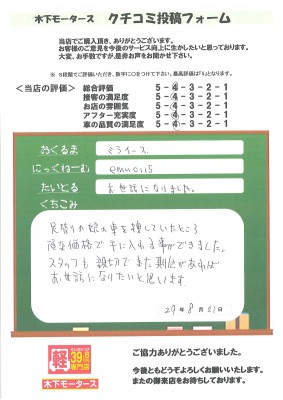 木下モータース クチコミ投稿フォーム
当店でご購入頂き、ありがとうございます。
お客様のご意見を今後のサービス向上に生かしたいと思っております。
大変、お手数ですが、是非お声をお聞かせ下さい。
※ 5段階でご評価いただき、数字に○をつけて下さい。最高評価は「5」となります。
<当店の評価>
総合評価 5-4-3-2-1
接客の満足度 5-4-3-2-1
お店の雰囲気 5-4-3-2-1
アフター充実度 5-4-3-2-1
車の品質の満足度 5-4-3-2-1
おくるま ミライース
にっくねーむ
たいとる お世話になりました。
くちこみ
見習りの娘の車を捜していたところ
価格で手に入れる事ができました。
スタッフも親切でまた機会があれば
お世話になりたいと思います。
29年8月21日
軽
39.8
専門店
木下モータース
ご協力ありがとうございました。
今後ともどうぞよろしくお願いいたします。
またの御来店をお待ちしております。